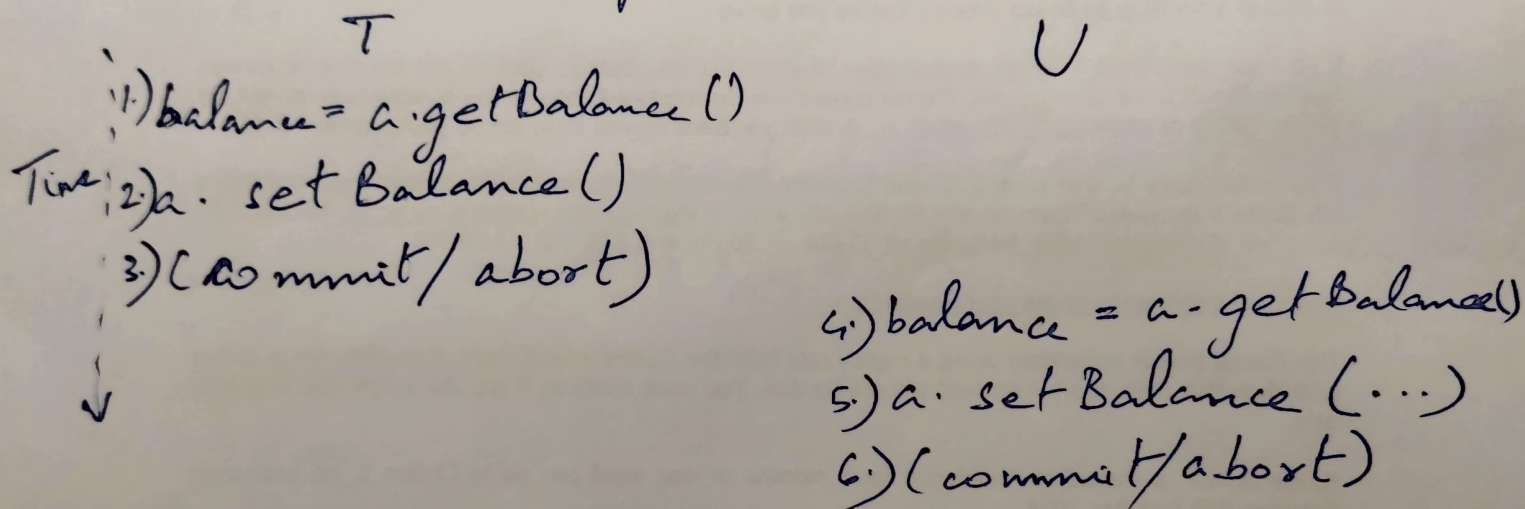 T U
1.) balance = a.getBalance()
Time 2.) a. setBalance()
3.) (commit/abort)
4.) balance = a.getBalance()
5.) a. setBalance (...)
6.) (commit/abort)